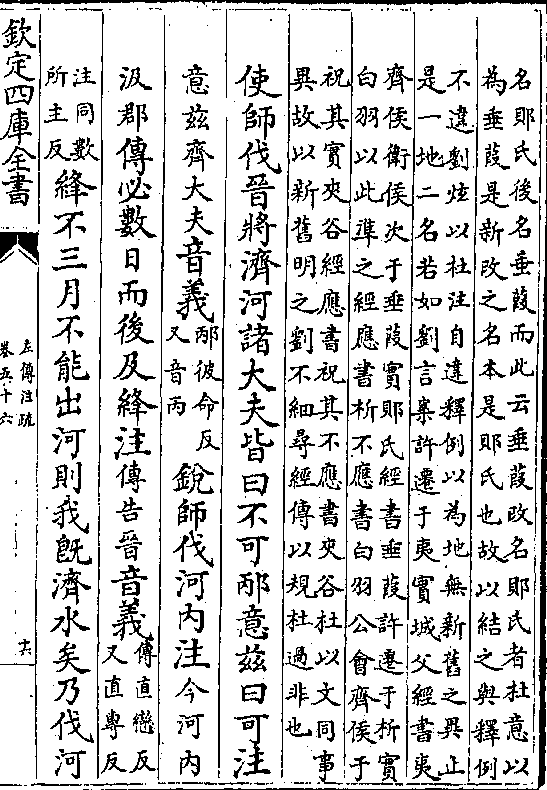 名郹氏後名垂葭而此云垂葭改名郹氏者杜意以
為垂葭是新改之名本是郹氏也故以結之與釋例
不違劉炫以杜注自違釋例以為地無新舊之異止
是一地二名若如劉言案許遷于夷實城父經書夷
齊侯衛侯次于垂葭實郹氏經書垂葭許遷于析實
白羽以此準之經應書析不應書白羽公會齊侯于
祝其實夾谷經應書祝其不應書夾谷杜以文同事
異故以新舊明之劉不細尋經傳以規杜過非也
使師伐晉將濟河諸大夫皆曰不可邴意茲曰可注
意茲齊大夫音義邴彼命反又音丙銳師伐河內注今河內
汲郡傳必數日而後及絳注傳告晉音義傳直戀反又直專反
注同數所主反絳不三月不能出河則我既濟水矣乃伐河
欽定四庫全書
左傳注疏
卷五十六
十六